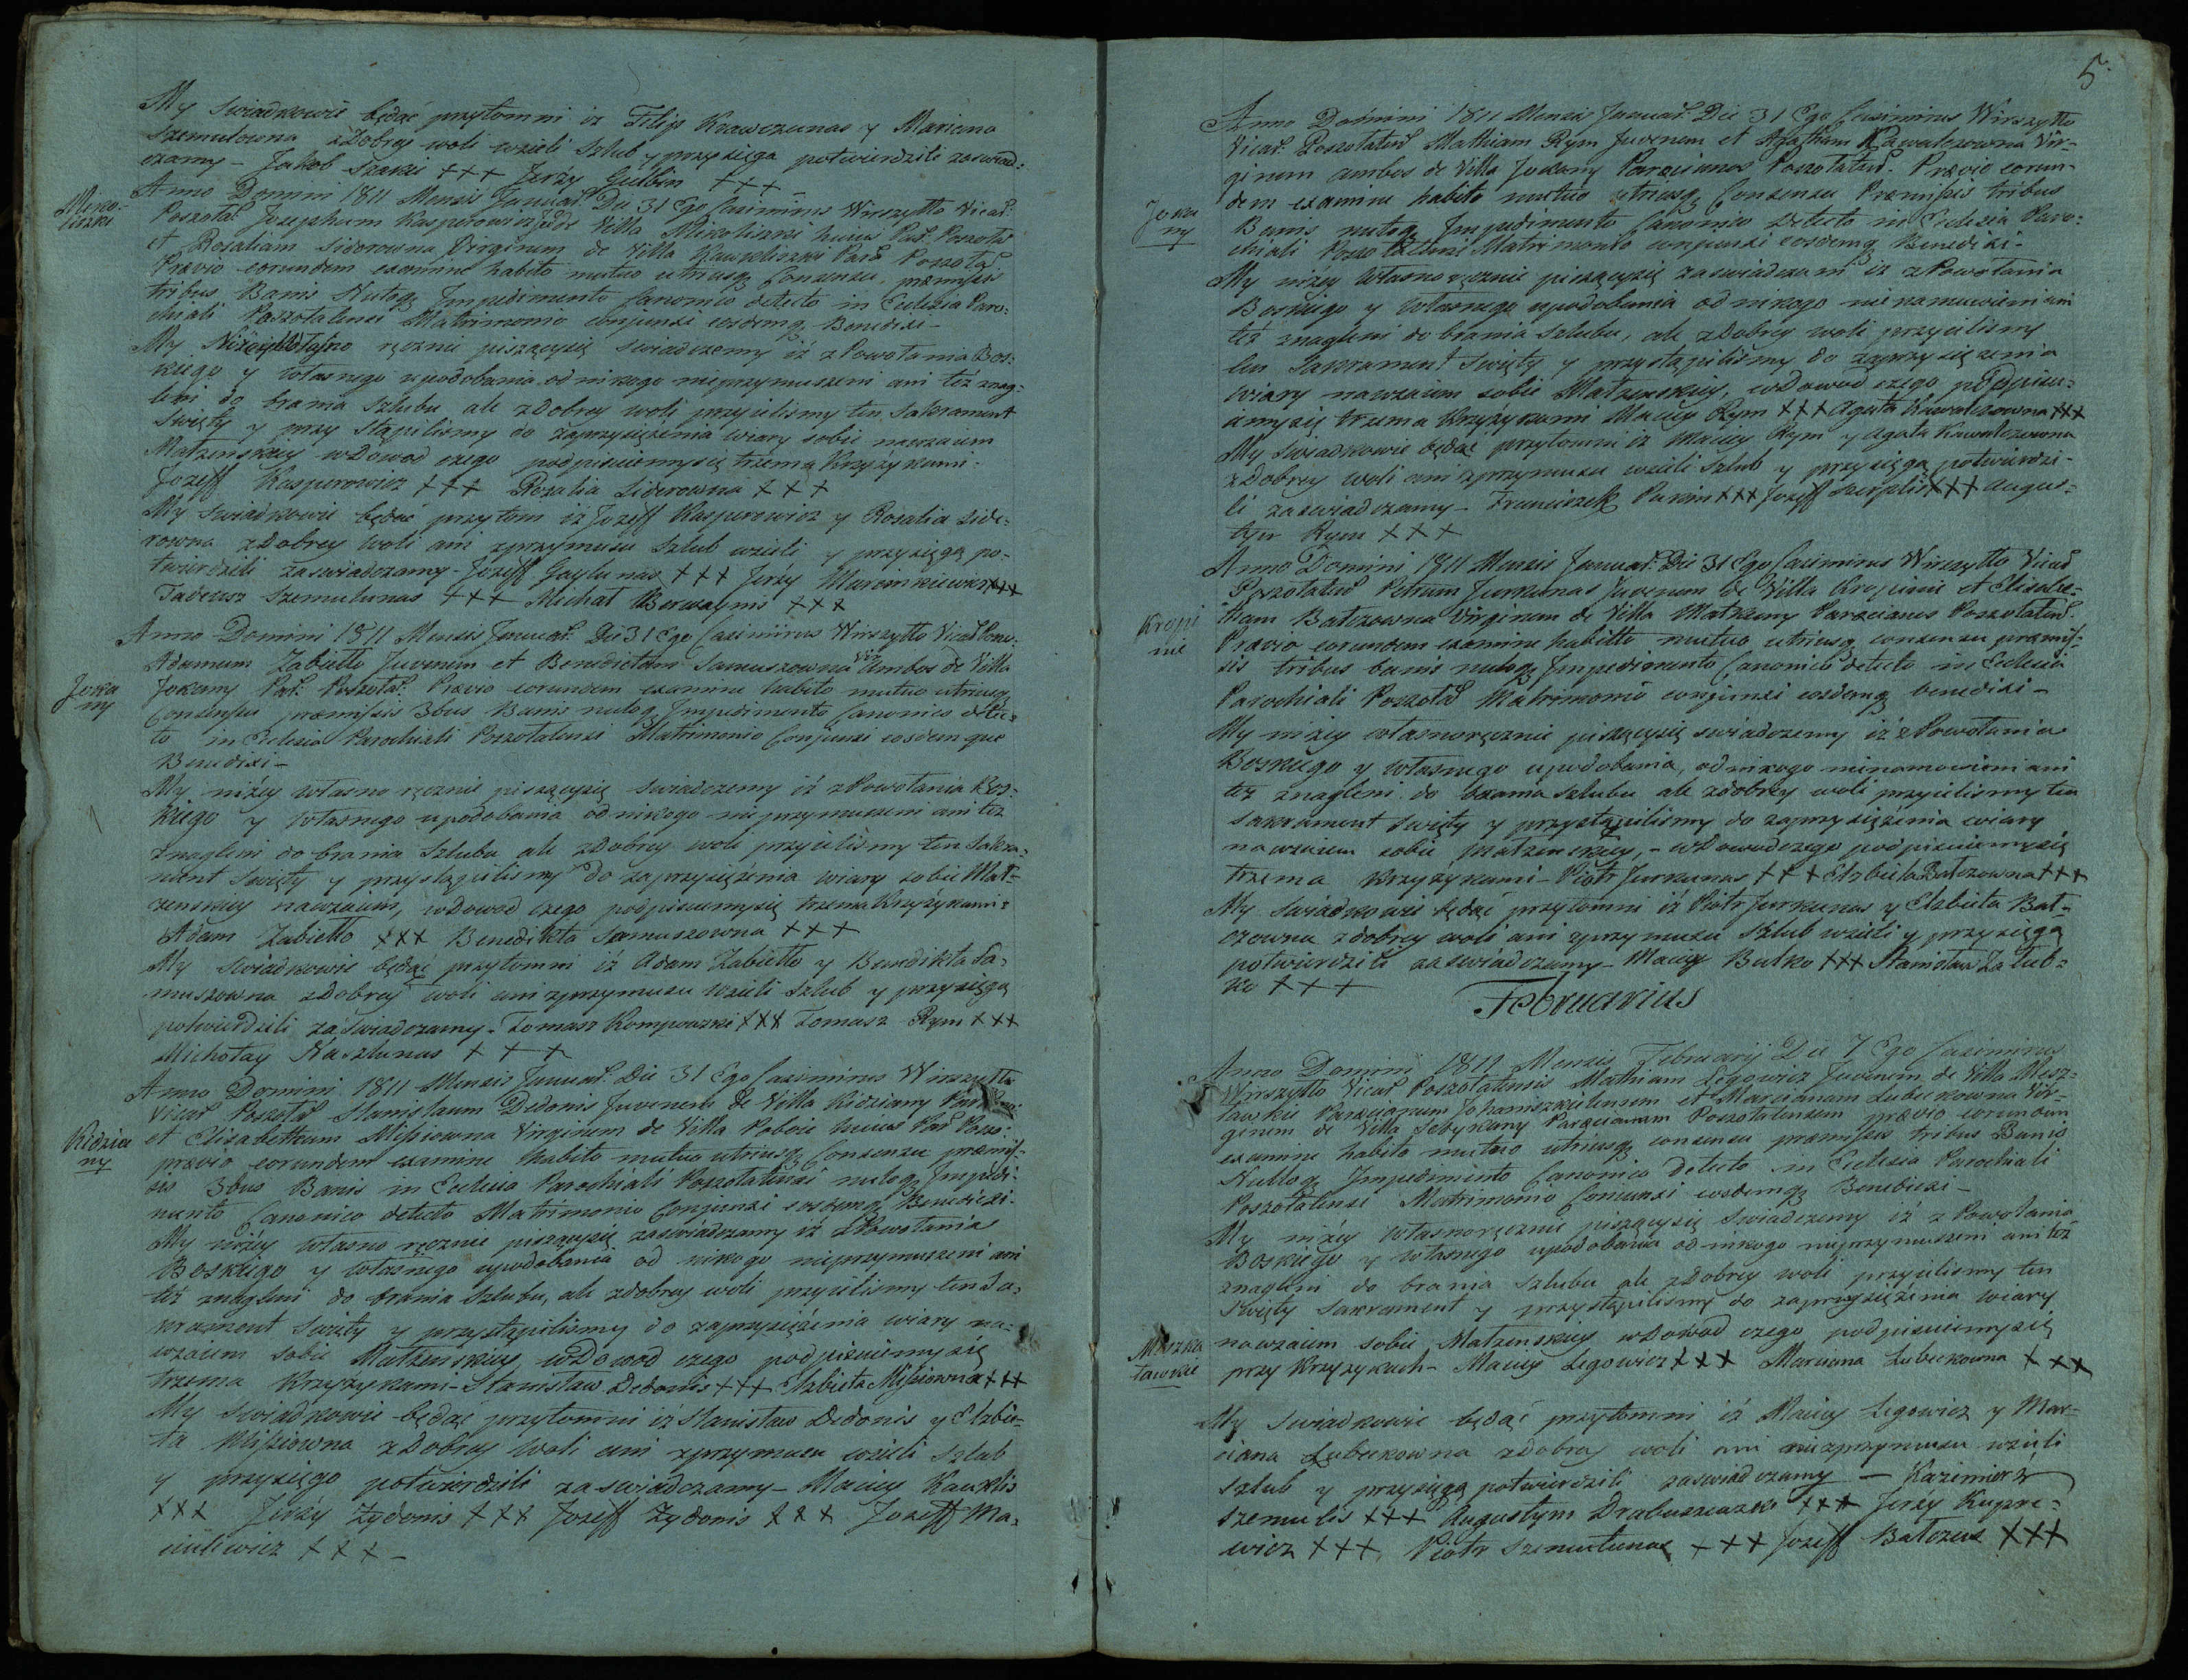 My Swiadkowie będąć przytomni iz Filip Krawczunas y Mariana
Szemutowna zDobrey woli wzieli Szlub y przysięga potwierdzili zaswiad:
czamy – Jakob Szakis +++ Jerży Gulbin +++ –
Anno Domini 1811 Mensis Januar: Die 31 Ego Casimirus Wirszyłło Vicar:
Poszolat Josephum Kasperowicz de Villa huius Par: Poszolat
et Rosaliam Siderowna Virginem de Villa Par: Poszolat
Prævio eorundem examine habito mutuo utriusq Consensu, præmissis
tribus Banis Nuloq Impedimento Canonico detecto in Eclesia Paro:
chiali Poszolatensi Matrimonio conjunxi eosdemq Benedixi –
My Niżey Własno ręcznie piszącysię swiadczemy iż z Powołania Bos:
kiego y Własnego upodobania od nikogo nieprzymuszeni ani też znag:
leni do brania Szlubu ale zdobrey woli przyieliśmy ten Sakrament
Swięty y przy Stąpiliśmy do zaprzysiężenia Wiary sobie nawzaiem
Małżenskiey wDowod czego podpisuiemysię trzema Krzyżykami –
Jozeff Kasperowicz +++ Rozalia Siderowna +++
My swiadkowie będąć przytom iż Jozeff Kasperowicz y Rosalia Side:
rowna zDobrey Woli ani zprzymusu Szlub wzieli y przysięgą po:
twierdzili zaswiadczamy – Jozeff Gaylunas +++ Jerży Marcinkiewicz +++
Tadeusz Szemutunas +++ Michał +++
Anno Domini 1811 Mensis Januar: Die 31 Ego Casimirus Wirszyłło Vicar
Adamum Zabiełło Juvenem et Benedictam Samuszowna Vir Ambos de Villa
Jokany Par: Poszolat: Prævio eorundem examine habito mutuo utriusq
Consensu præmissis 3bus Banis nuloq Impedimento Canonico detec:
to in Eclesia Parochiali Poszolatensi Matrimonio Conjunxi eosdemque
Benedixi –
My niżey własno ręcznie piszącysię swiadczemy iż z Powołania Bos:
kiego y Własnego upodobania od nikogo nie przymuszeni ani też
znagleni do brania Szlubu ale zdobrey woli przyieliśmy ten Sakra:
ment Swięty y przystąpiliśmy do zaprzysiężenia wiary sobie Mał:
żenskiey nawzaiem, wDowod czego podpisuiemysię trzema Krzyżykami:
Adam Zabiełło +++ Benedikta Samuszowna +++
My Swiadkowie będąć przytomni iż Adam Zabiełło y Benedikta Sa:
muszowna zDobrey woli ani zprzymusu wzieli Szlub y przysięgą
potwierdzili zaswiadczamy – Tomasz +++ Tomasz Rym +++
Michołay +++
Anno Domini 1811 Mensis Januar: Die 31 Ego Casimirus Wirszyłło
Vicar Poszolat Stanislaum Dedonis Juvenem de Villa Kidziany
et Elisabetham Missiowna Virginem de Villa huius Par
prævio eorundem examine habito mutuo utriusq Consensu præmis:
sis 3bus Banis in Eclesia Parochiali Poszolatensi nuloq Impedi:
mento Canonico detecto Matrimonio Conjunxi eosdemq Benedixi –
My niżey Własno ręcznie piszącysię zaswiadczamy iż zPowołania
Boskiego y własnego upodobania od nikogo nieprzymuszeni ani
też znagleni do brania Szlubu, ale zdobrey woli przyieliśmy ten Sa:
krament Swięty y przystąpiliśmy do zaprzysiężenia wiary na:
wzaiem sobie Małżenskiey, wDowod czego podpisuiemysię
trzema Krzyżykami – Stanisław Dedonis +++ Elzbieta Missiowna +++
My Swiadkowie będąć przytomni iż Stanisław Dedonis y Elzbie:
ta Missiowna zDobrey Woli ani zprzymusu wzieli Szlub
y przysięgo potwierdzili zaswiadczamy – Maciey
+++ Jerży Zydonis +++ Jozeff Zydonis +++ Jozeff Ma:
+++ –
Joka
ny
Kidzia
ny
5.
Anno Domini 1811 Mensis Januar: Die 31 Ego Casimirus Wirszyłło
Vicar: Poszolatens Mathiam Rym Juvenem et Agatham Kawalczowna Vir:
ginem ambos de Villa Jokany Paræcianos Poszolatens. Prævio eorun:
dem examine habito mutuo utriusq Consensu Præmissis tribus
Banis nuloq Impedimento Canonico Detecto in Eclesia Paro:
chiali Poszolatensi Matrimonio conjunxi eosdemq Benedixi –
My niżey Własno ręcznie piszącysię zaswiadczam iż z Powołania
Boskiego y Własnego upodobania od nikogo nie namuwieni ani
też znagleni do brania Szlubu, ale zDobrey woli przyieliśmy
ten Sakrament Swięty y przystąpiliśmy do zaprzysiężenia
Wiary nawzaiem sobie Małżenskiey, wDowod czego podpisu:
iemysię trzema Krzyżykami Maciey Rym +++ Agata Kawalczowna +++
My Swiadkowie będąć przytomni iż Maciey Rym y Agata Kawalczowna
zDobrey woli ani zprzymusu wzieli Szlub y przysięgą potwierdzi:
li zaswiadczamy – Franciszek +++ Jozeff +++ Augus:
tyn Rym +++
Anno Domini 1811 Mensis Januar: Die 31 Ego Casimirus Wirszyłło Vicar
Poszolatens Petrum Jurkunas Juvenem de Villa Kropinie et Elisabe:
tham Batczowna Virginem de Villa Matkany Paræcianos Poszolatens.
Prævio eorundem examine habitto mutuo utriusq consensu præmis:
sis tribus banis nuloq Impedimento Canonico detecto in Eclesia
Parochiali Poszolat Matrimonio conjunxi eosdemq benedixi –
My niżey własnoręcznie piszącysię swiadczemy iż z Powołania
Boskiego y Własnego upodobania, od nikogo nienamowieni ani
też znagleni do brania Szlubu ale zdobrey woli przyieliśmy ten
sakrament Swięty y przystąpiliśmy do zaprzysiężenia wiary
nawzaiem sobie Małżenskiey, – wDowod czego podpisuiemysię
trzema Krzyżykami – Piotr Jurkunas +++ Elzbieta Batczowna +++
My Swiadkowie będąć przytomni iż Piotr Jurkunas y Elzbieta Bat:
czowna zdobrey woli ani zprzymusu Szlub wzieli y przysięgą
potwierdzili zaswiadczamy – Maciey Butko +++ Stanisław Załub:
ko +++
Februarius
Anno Domini 1811 Mensis Februarij Die 7 Ego Casimirus
Wirszyłło Vicar Poszolatensis Mathiam Legowicz Juvenem de Villa Mesz:
Paræcianum Johaniszkielensem et Marcianam Lubeckowna Vir:
ginem de Villa Paræcianam Poszolatensem prævio eorundem
examine habito mutuo utriusq consensu præmissis tribus Banis
Nulloq Impedimento Canonico Detecto in Eclesia Parochiali
Poszolatensi Matrimonio Coniunxi eosdemq Benedixi –
My niżey własnoręcznie piszącysię swiadczemy iż z Powołania
Boskiego y własnego upodobania od nikogo nieprzymuszeni ani też
znagleni do brania Szlubu ale zDobrey woli przyieliśmy ten
Swięty Sakrament y przystąpiliśmy do zaprzysiężenia Wiary
nawzaiem sobie Małżenskiey wDowod czego podpisuiemysię
przy Krzyżykach – Maciey Legowicz +++ Marciana Lubeckowna +++
My Swiadkowie będąć przytomni iż Maciey Legowicz y Mar:
ciana Lubeckowna zdobrey woli ani zprzymusu wzieli
Szlub y przysięgą potwierdzili zaswiadczamy – Kazimierz
Szemulis +++ Augustyn +++ Jerży Kupre:
wicz +++ Piotr Szemutunas +++ Jozeff Batczus +++
Joka
ny
Kropi
nie